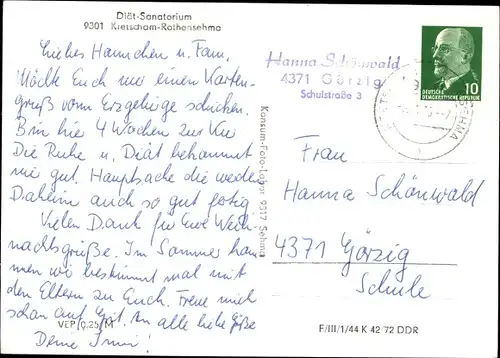 Diät-Sanatorium
9301 Kretscham-Rothensehma
Liebes Hannchen u. Fam.
Möchte Euch nur einen Karten-
gruß vom Erzgebirge schicken.
Bin hier 4 Wochen zur Kur
Die Ruhe u. Diät bekommt
mir gut. Hauptsache die wede
Daheim auch so gut fertig.
Vielen Dank für Ewe Weih-
nachtsgrüße. Im Sommer kom
men wir bestimmt mal mit
den Eltern zu Euch. Freue mich
schon auf Alle liebe Grüße
Deine Irmi!
VEP 0,25 M
Konsum-Foto-Labor 9317 Sehma
Hanna Schönwald
4371 Görzig
Schulstraße 3
DEUTSCHE
DEMOKRATISCHE REPUBLIK
10
Frau
Hanna Schönwald
4371 Görzig
Schule
F/III/1/44 K 42 72 DDR